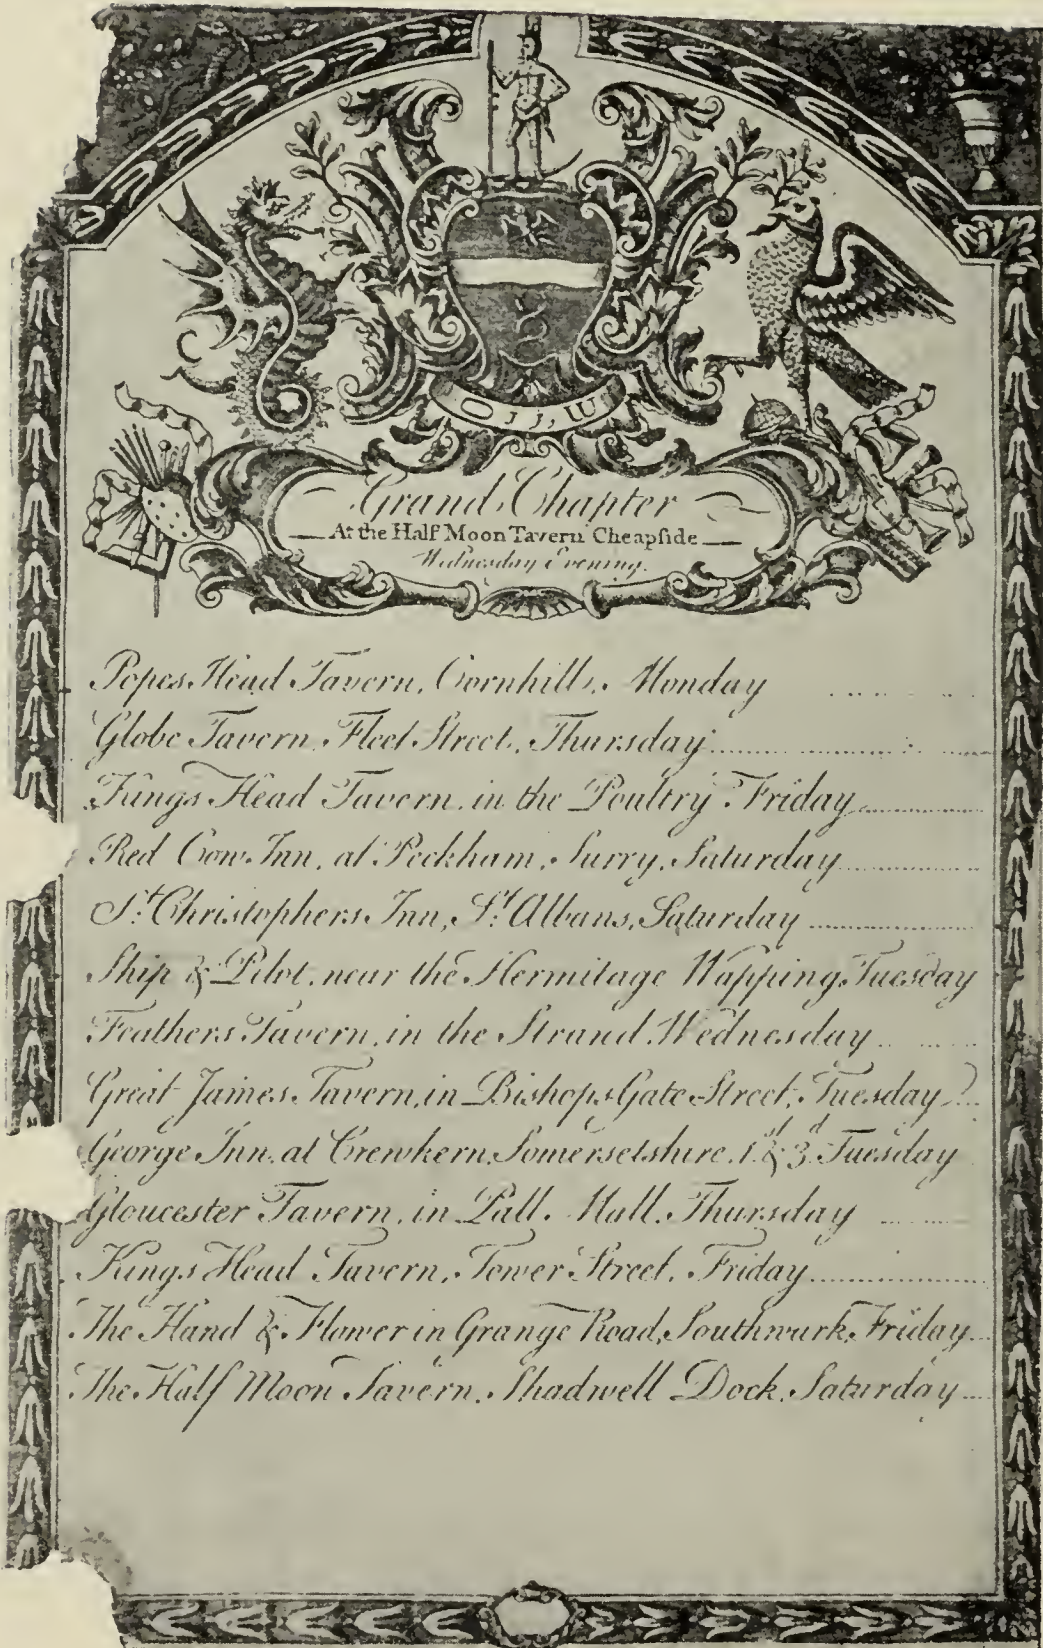 O J J, W
Grand Chapter
At the Half Moon Tavern Cheapſide
Wednesday Evening.
Popes Head Tavern, Cornhill, Monday
Globe Tavern, Fleet Street, Thursday
Kings Head Tavern, in the Poultry Friday
Red Cow Inn, at Peckham, Surry, Saturday
St. Christophers Inn, St. Albans, Saturday
Ship & Pilot, near the Hermitage Wapping, Tuesday
Feathers Tavern, in the Strand, Wednesday
Great James Tavern, in Bishops Gate Street, Tuesday
George Inn, at Crewkern, Somersetshire, 1st & 3d Tuesday
Gloucester Tavern, in Pall Mall, Thursday
Kings Head Tavern, Tower Street, Friday
The Hand & Flower in Grange Road, Southwark, Friday
The Half Moon Tavern, Shadwell Dock, Saturday